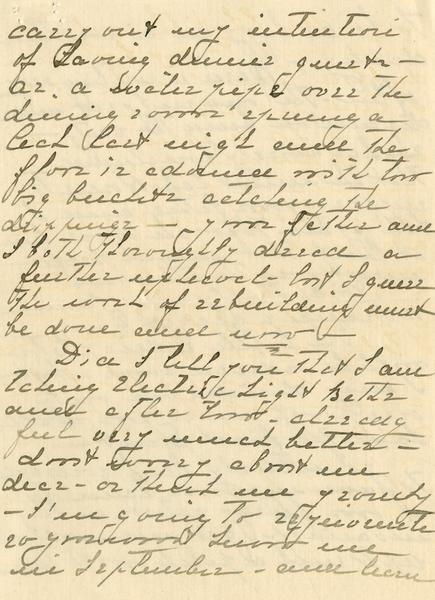 carry out my intention
of having dinner guests —
as a water pipe over the
dining room sprung a
leak last night and the
floor is adorned with two
big buckets catching the
drippings — your father and
I both thoroughly dread a
further upheaval but I guess
the work of rebuilding must
be done and now —
Did I tell you that I am
taking Electric Light Baths
and after two — already
feel very much better —
dont worry about me
dear — or think me grouchy
— I'm going to rejuvenate
so you wont know me
in September — and